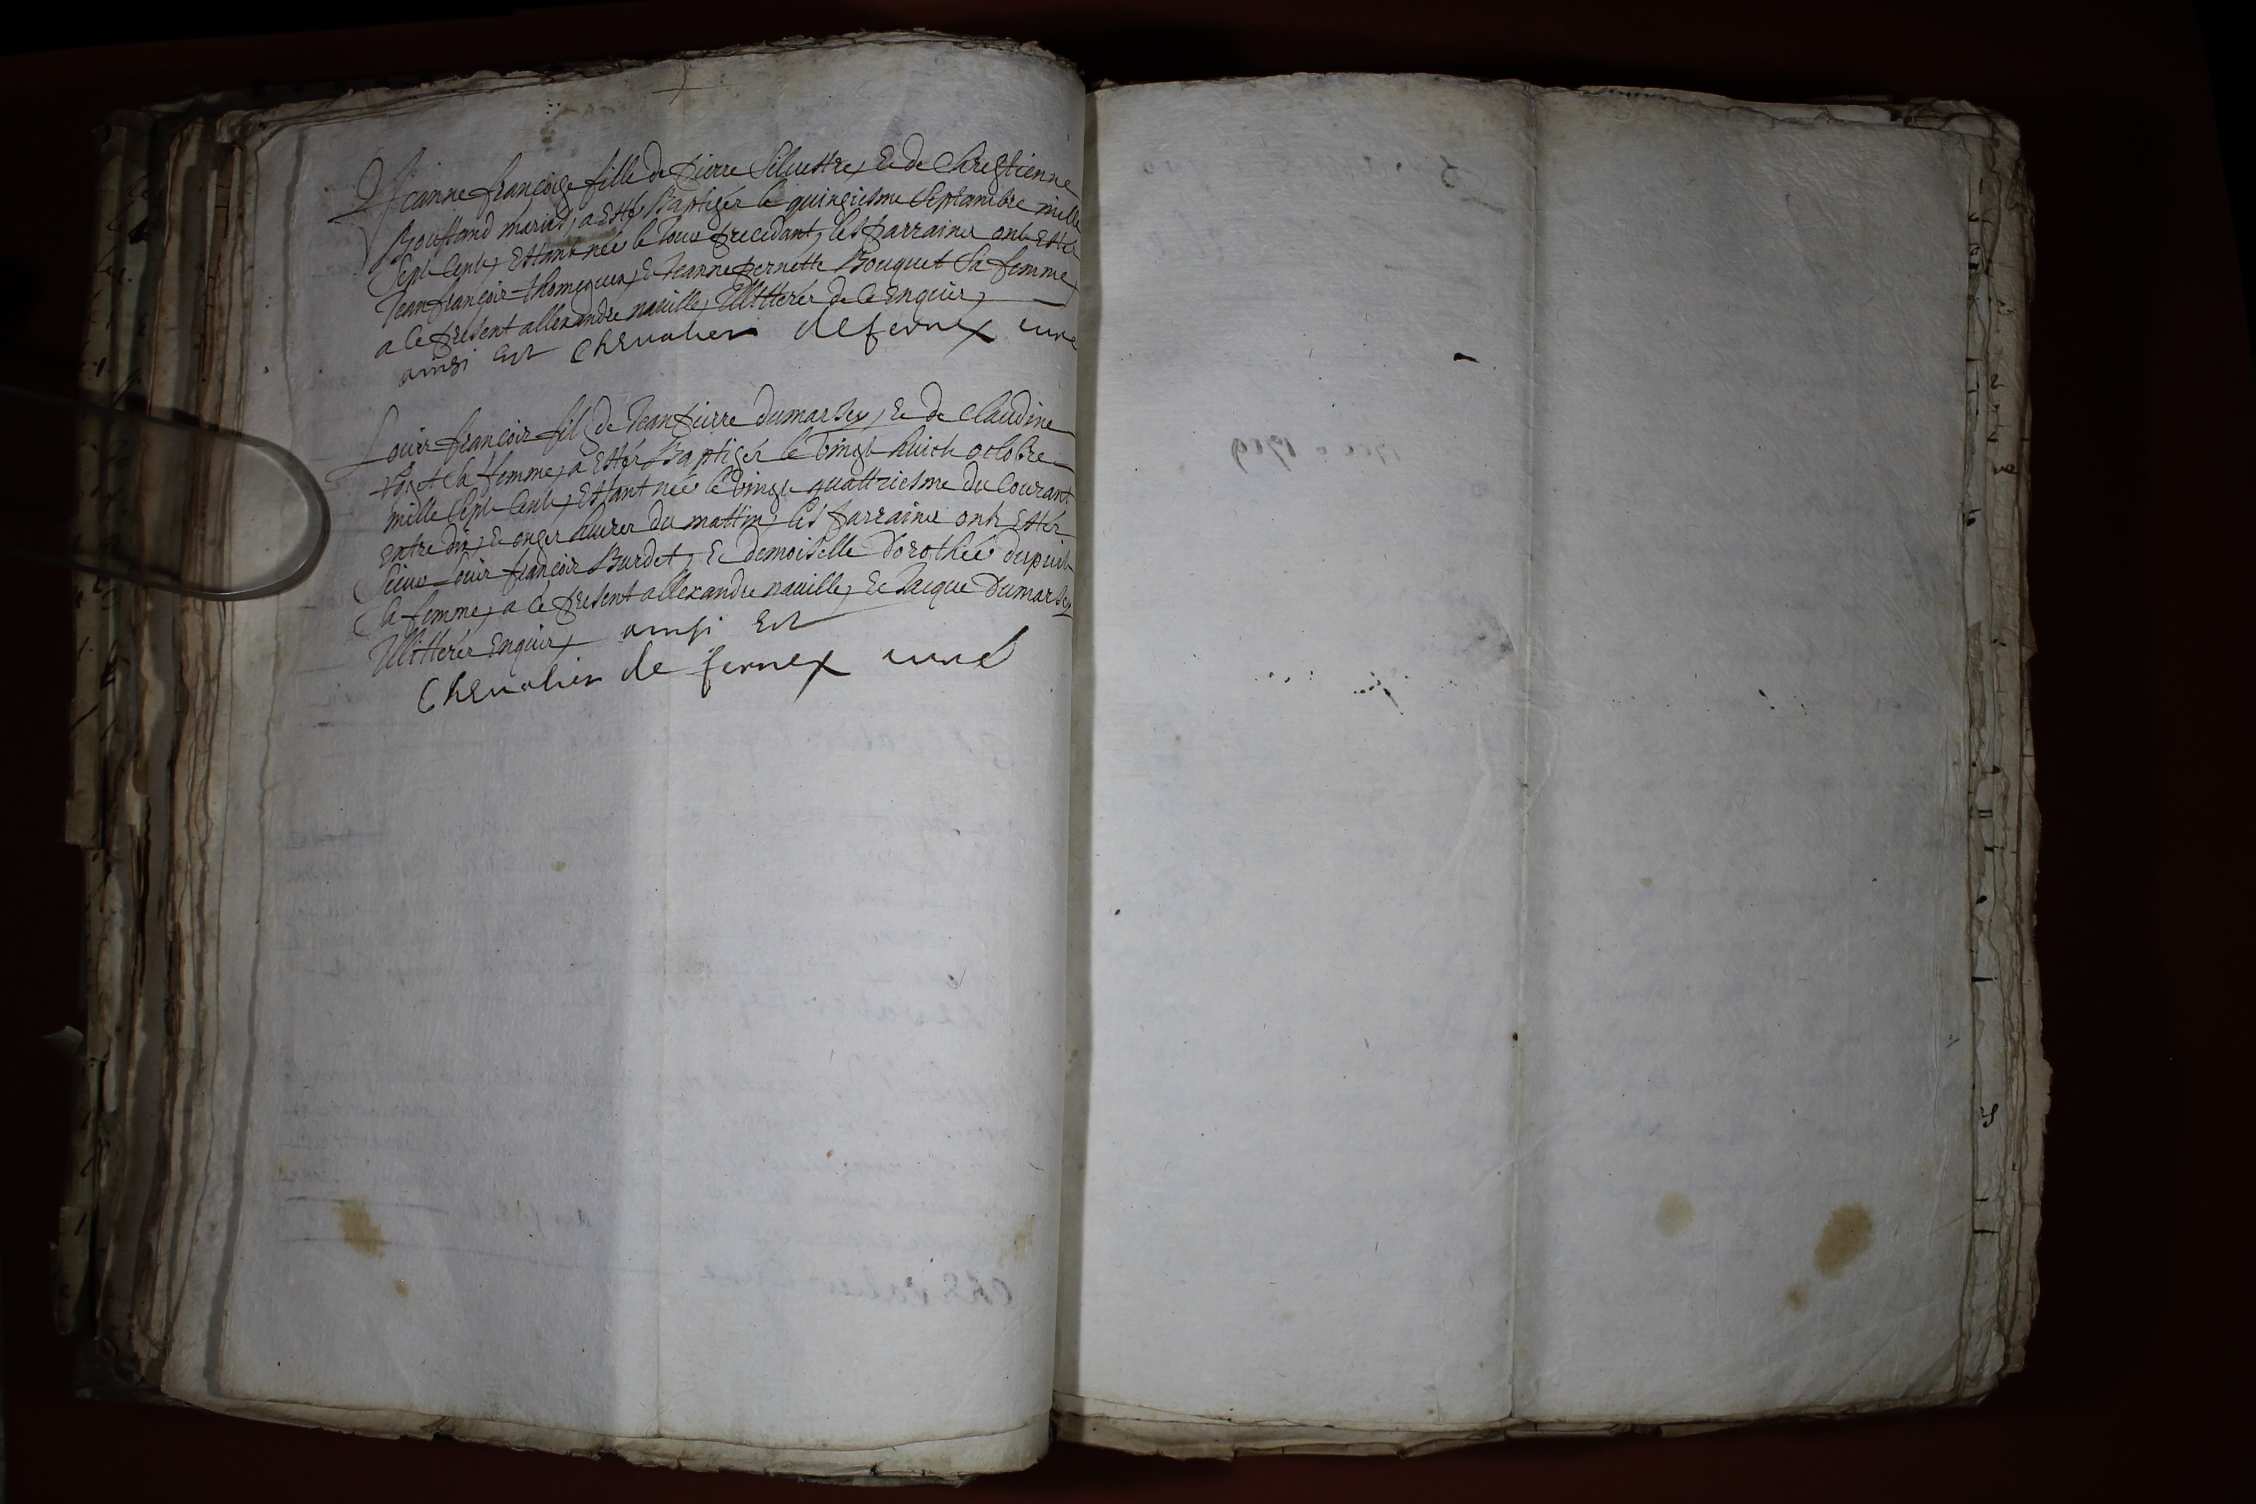 Jeanne françoise fille de pierre Siluestre, Et de Chrestienne
Bouffand mariés, a Esté Baptisée le quinziesme Septambre mille
Sept Cents, Estant née le Jour precedant, les parrains ont Estés
Jean françois thomeguex, Et Jeanne pernette Bouquet Sa femme,
a ce present allexandre nauille, Illitterés de ce Enquis,
ainsi Est Chevalier de fernex curé
Louis françois fils de Jean pierre dumarey, Et de Claudine
sa femme, a Estés Baptisés le vingt huict octobre
mille Sept Cents, Estant née le vingt quattriesme du Courant
entre dix, Et onzes heures du mattin, les parrains ont Estés
Sieur Louis françois Burdet, Et demoiselle Dorothée dupuit
sa femme, a ce present allexandre nauille, Et Jacque Dumarey
Illitterés Enquis, ainsi Est
Chevalier de fernex curé